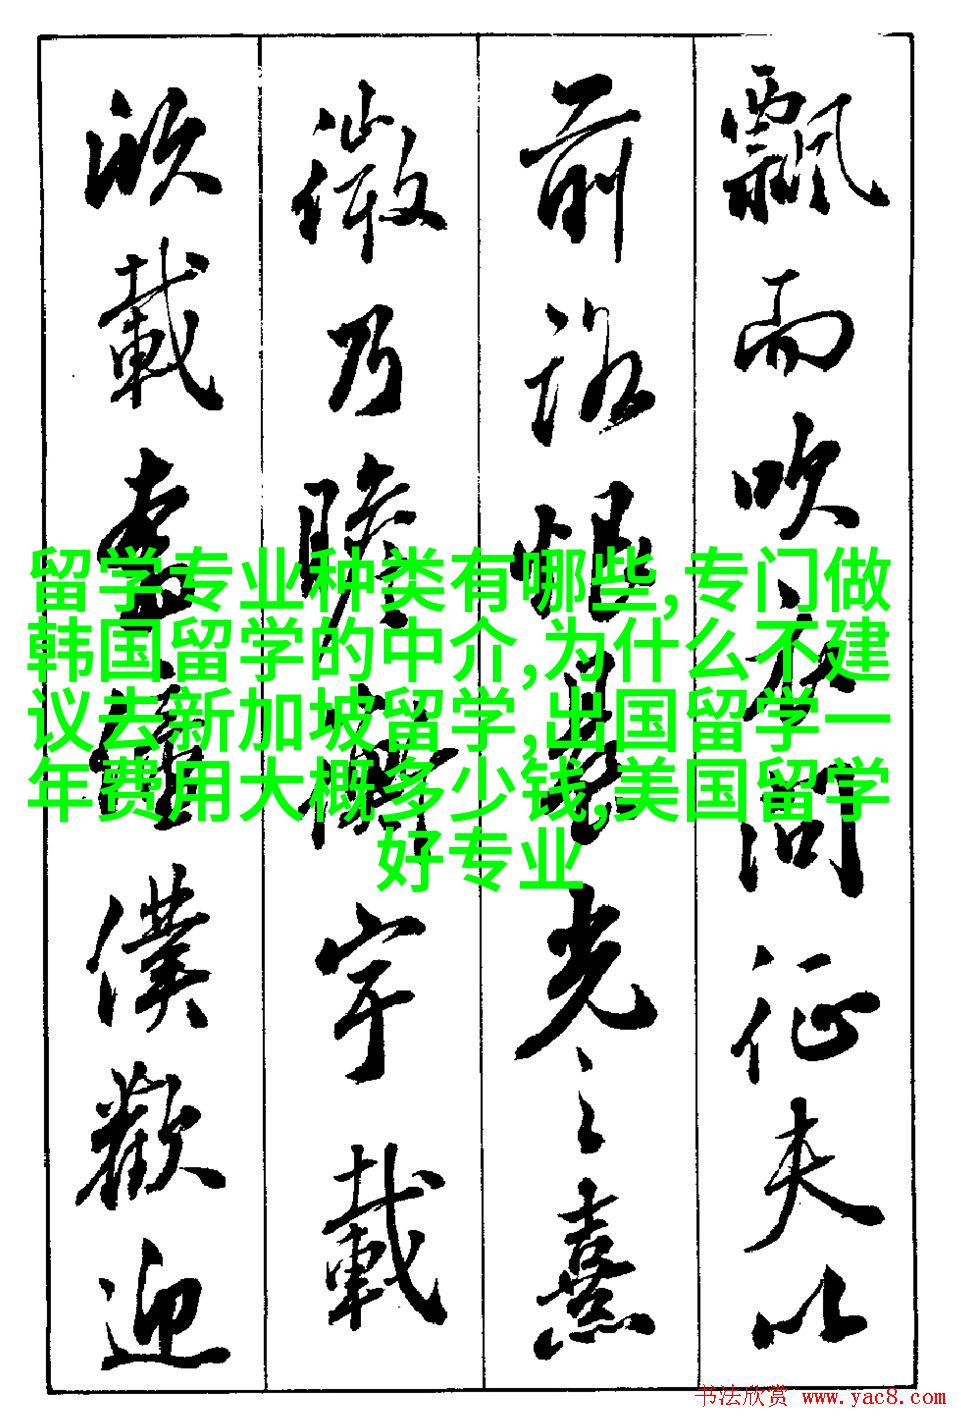 飄而吹衣問征夫以
前路恨晨光之熹
微乃瞻衡宇載
欣載奔僮僕歡迎
留学专业种类有哪些,专门做
韩国留学的中介,为什么不建
议去新加坡留学,出国留学一
年费用大概多少钱,美国留学
好专业
书法欣赏 www.yac8.com